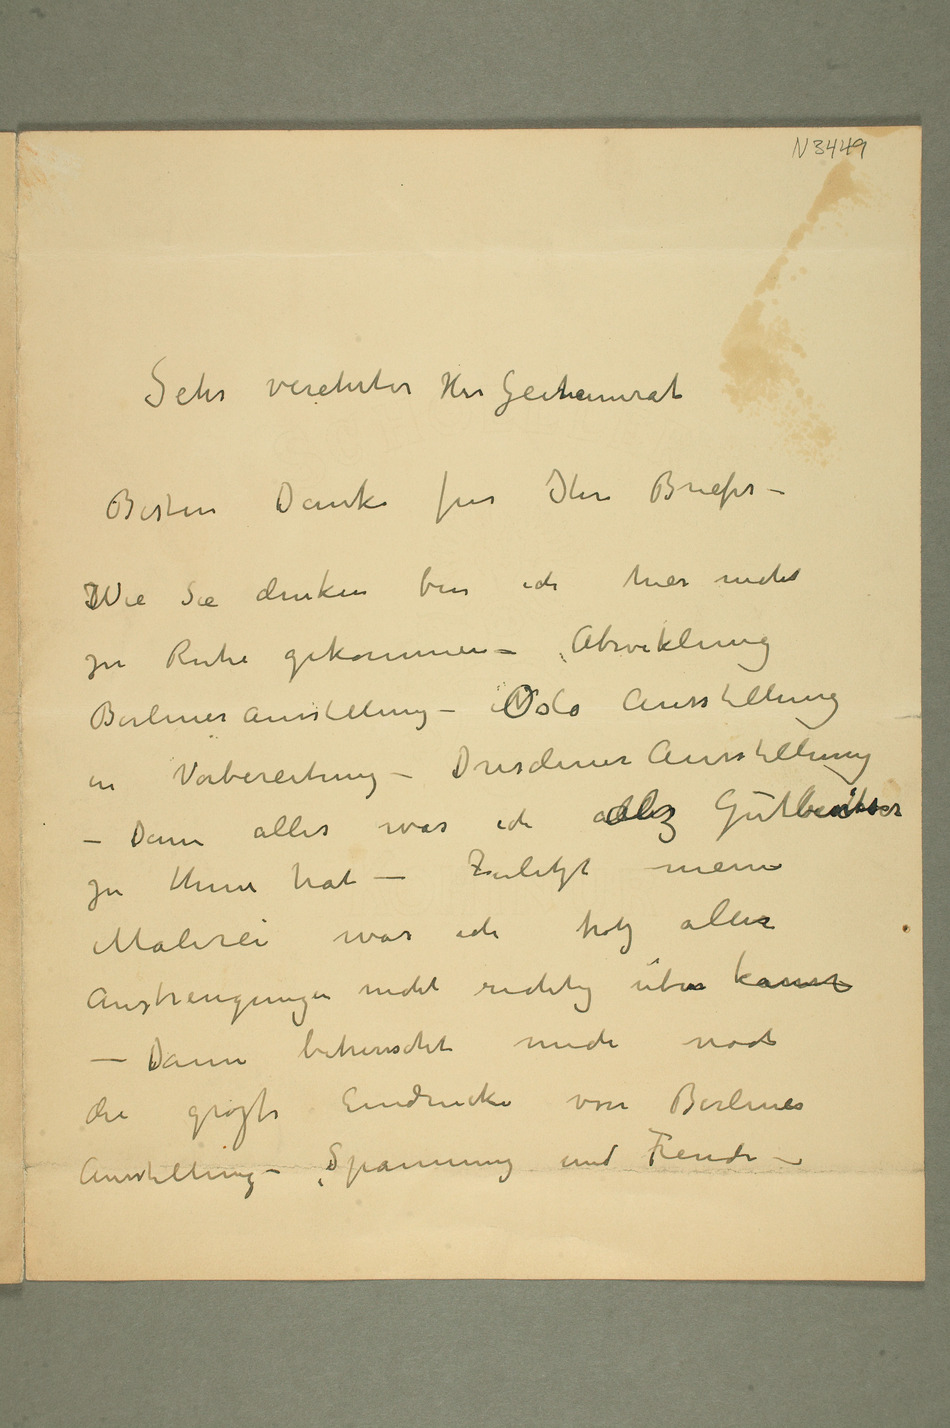 N 3449
Sehr verehrter Herr Geheimrat
Besten Danke für Ihre Briefer –
Wie Sie denken bin ich hier nicht
zu Ruhe gekommen – Abwiklung
Berliner Ausstellung – Oslo Ausstellung
in Vorbereitung – Dresdener Ausstellung
– Dann alles was ich als Gutbesitzer
zu thun hat – Zuletzt meine
Malerei was ich trotz aller
Anstrengungen nicht richtig über kamn
– Dann beherrscht mich noch
die große Eindrücke von Berliner
Ausstellung – Spannung und Freude –